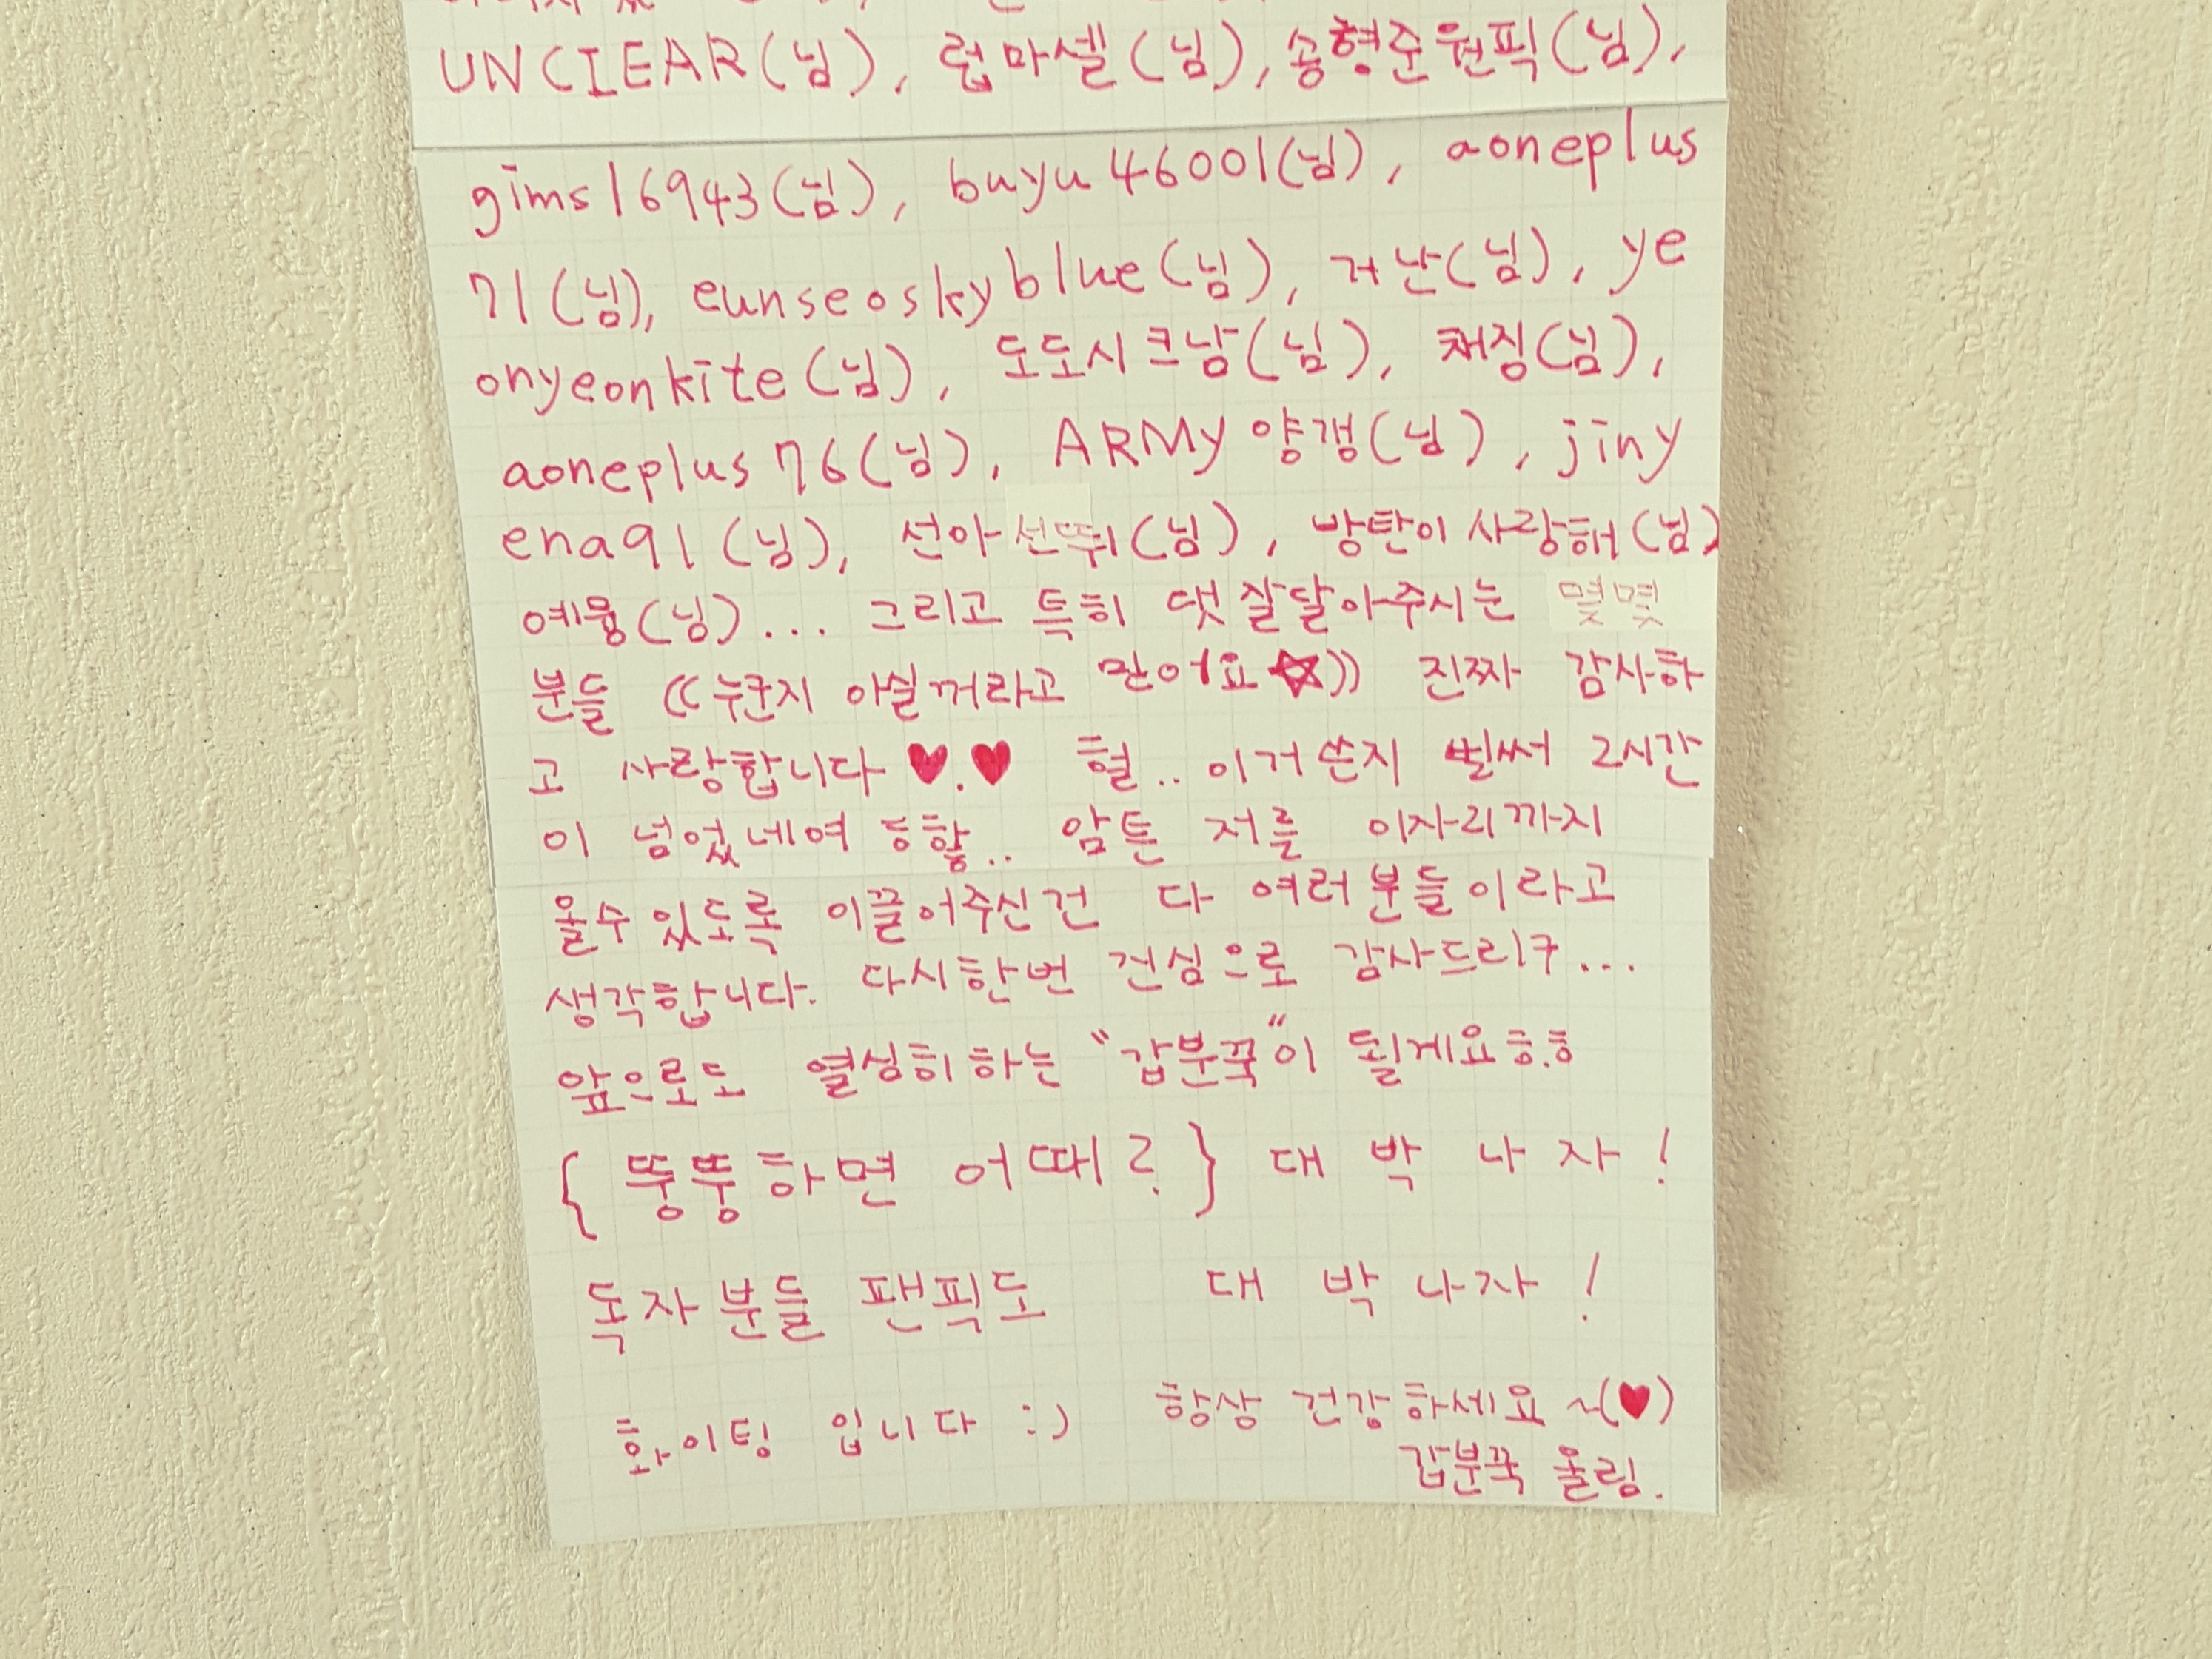 UNCIEAR(님), 럽마셀(님), 송형준원픽(님),
gims16943(님), buyu46001(님), aoneplus
71(님), eunseoskyblue(님), 거난(님), ye
onyeonkite(님), 도도시크남(님), 채징(님),
aoneplus76(님), ARMY양갱(님), jiny
ena91(님), 선아선뛰(님), 방탄이사랑해(님)
예융(님)... 그리고 특히 댓잘달아주시는 몇몇
분들 ((누군지 아실꺼라고 믿어요☆)) 진짜 감사하
고 사랑합니다♥.♥ 헐.. 이거쓴지 벌써 2시간
이 넘었네여 ㅎ핳.. 암튼 저를 이자리까지
올수있도록 이끌어주신건 다 여러분들이라고
생각합니다. 다시한번 진심으로 감사드리구...
앞으로도 열심히하는 "갑분꾹"이 될게요ㅎ.ㅎ
{ 뚱뚱하면 어때? } 대 박 나 자 !
독자분들 팬픽도 대 박 나자 !
화이팅 입니다 :) 항상 건강하세요~(♥)
갑분꾹 올림.